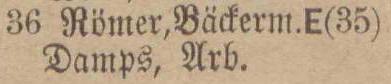 36 Römer, Bäckerm. E(35)
Damps, Arb.